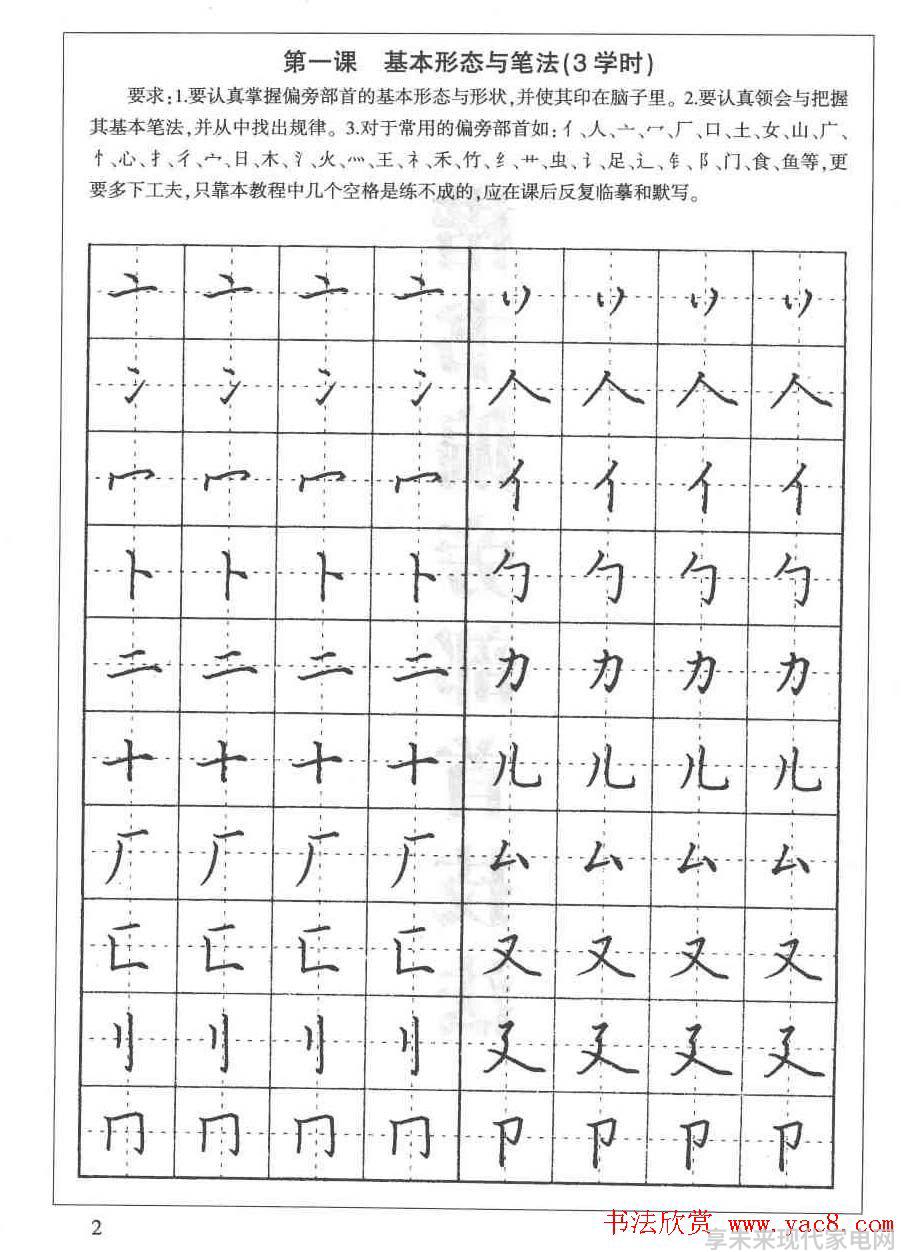 第一课 基本形态与笔法(3学时)
要求:1.要认真掌握偏旁部首的基本形态与形状,并使其印在脑子里。2.要认真领会与把握
其基本笔法,并从中找出规律。3.对于常用的偏旁部首如:亻、人、亠、冖、厂、口、土、女、山、广、
忄、心、扌、彳、宀、日、木、氵、火、灬、王、礻、禾、竹、纟、艹、虫、讠、足、辶、钅、阝、门、食、鱼等,更
要多下工夫,只靠本教程中几个空格是练不成的,应在课后反复临摹和默写。
亠 亠 亠 亠 丷 丷 丷 丷
冫 冫 冫 冫 人 人 人 人
冖 冖 冖 冖 亻 亻 亻 亻
卜 卜 卜 卜 勹 勹 勹 勹
二 二 二 二 力 力 力 力
十 十 十 十 儿 儿 儿 儿
厂 厂 厂 厂 厶 厶 厶 厶
匚 匚 匚 匚 又 又 又 又
刂 刂 刂 刂 廴 廴 廴 廴
冂 冂 冂 冂 卩 卩 卩 卩
2
书法欣赏 www.yac8.com
享未来现代家电网